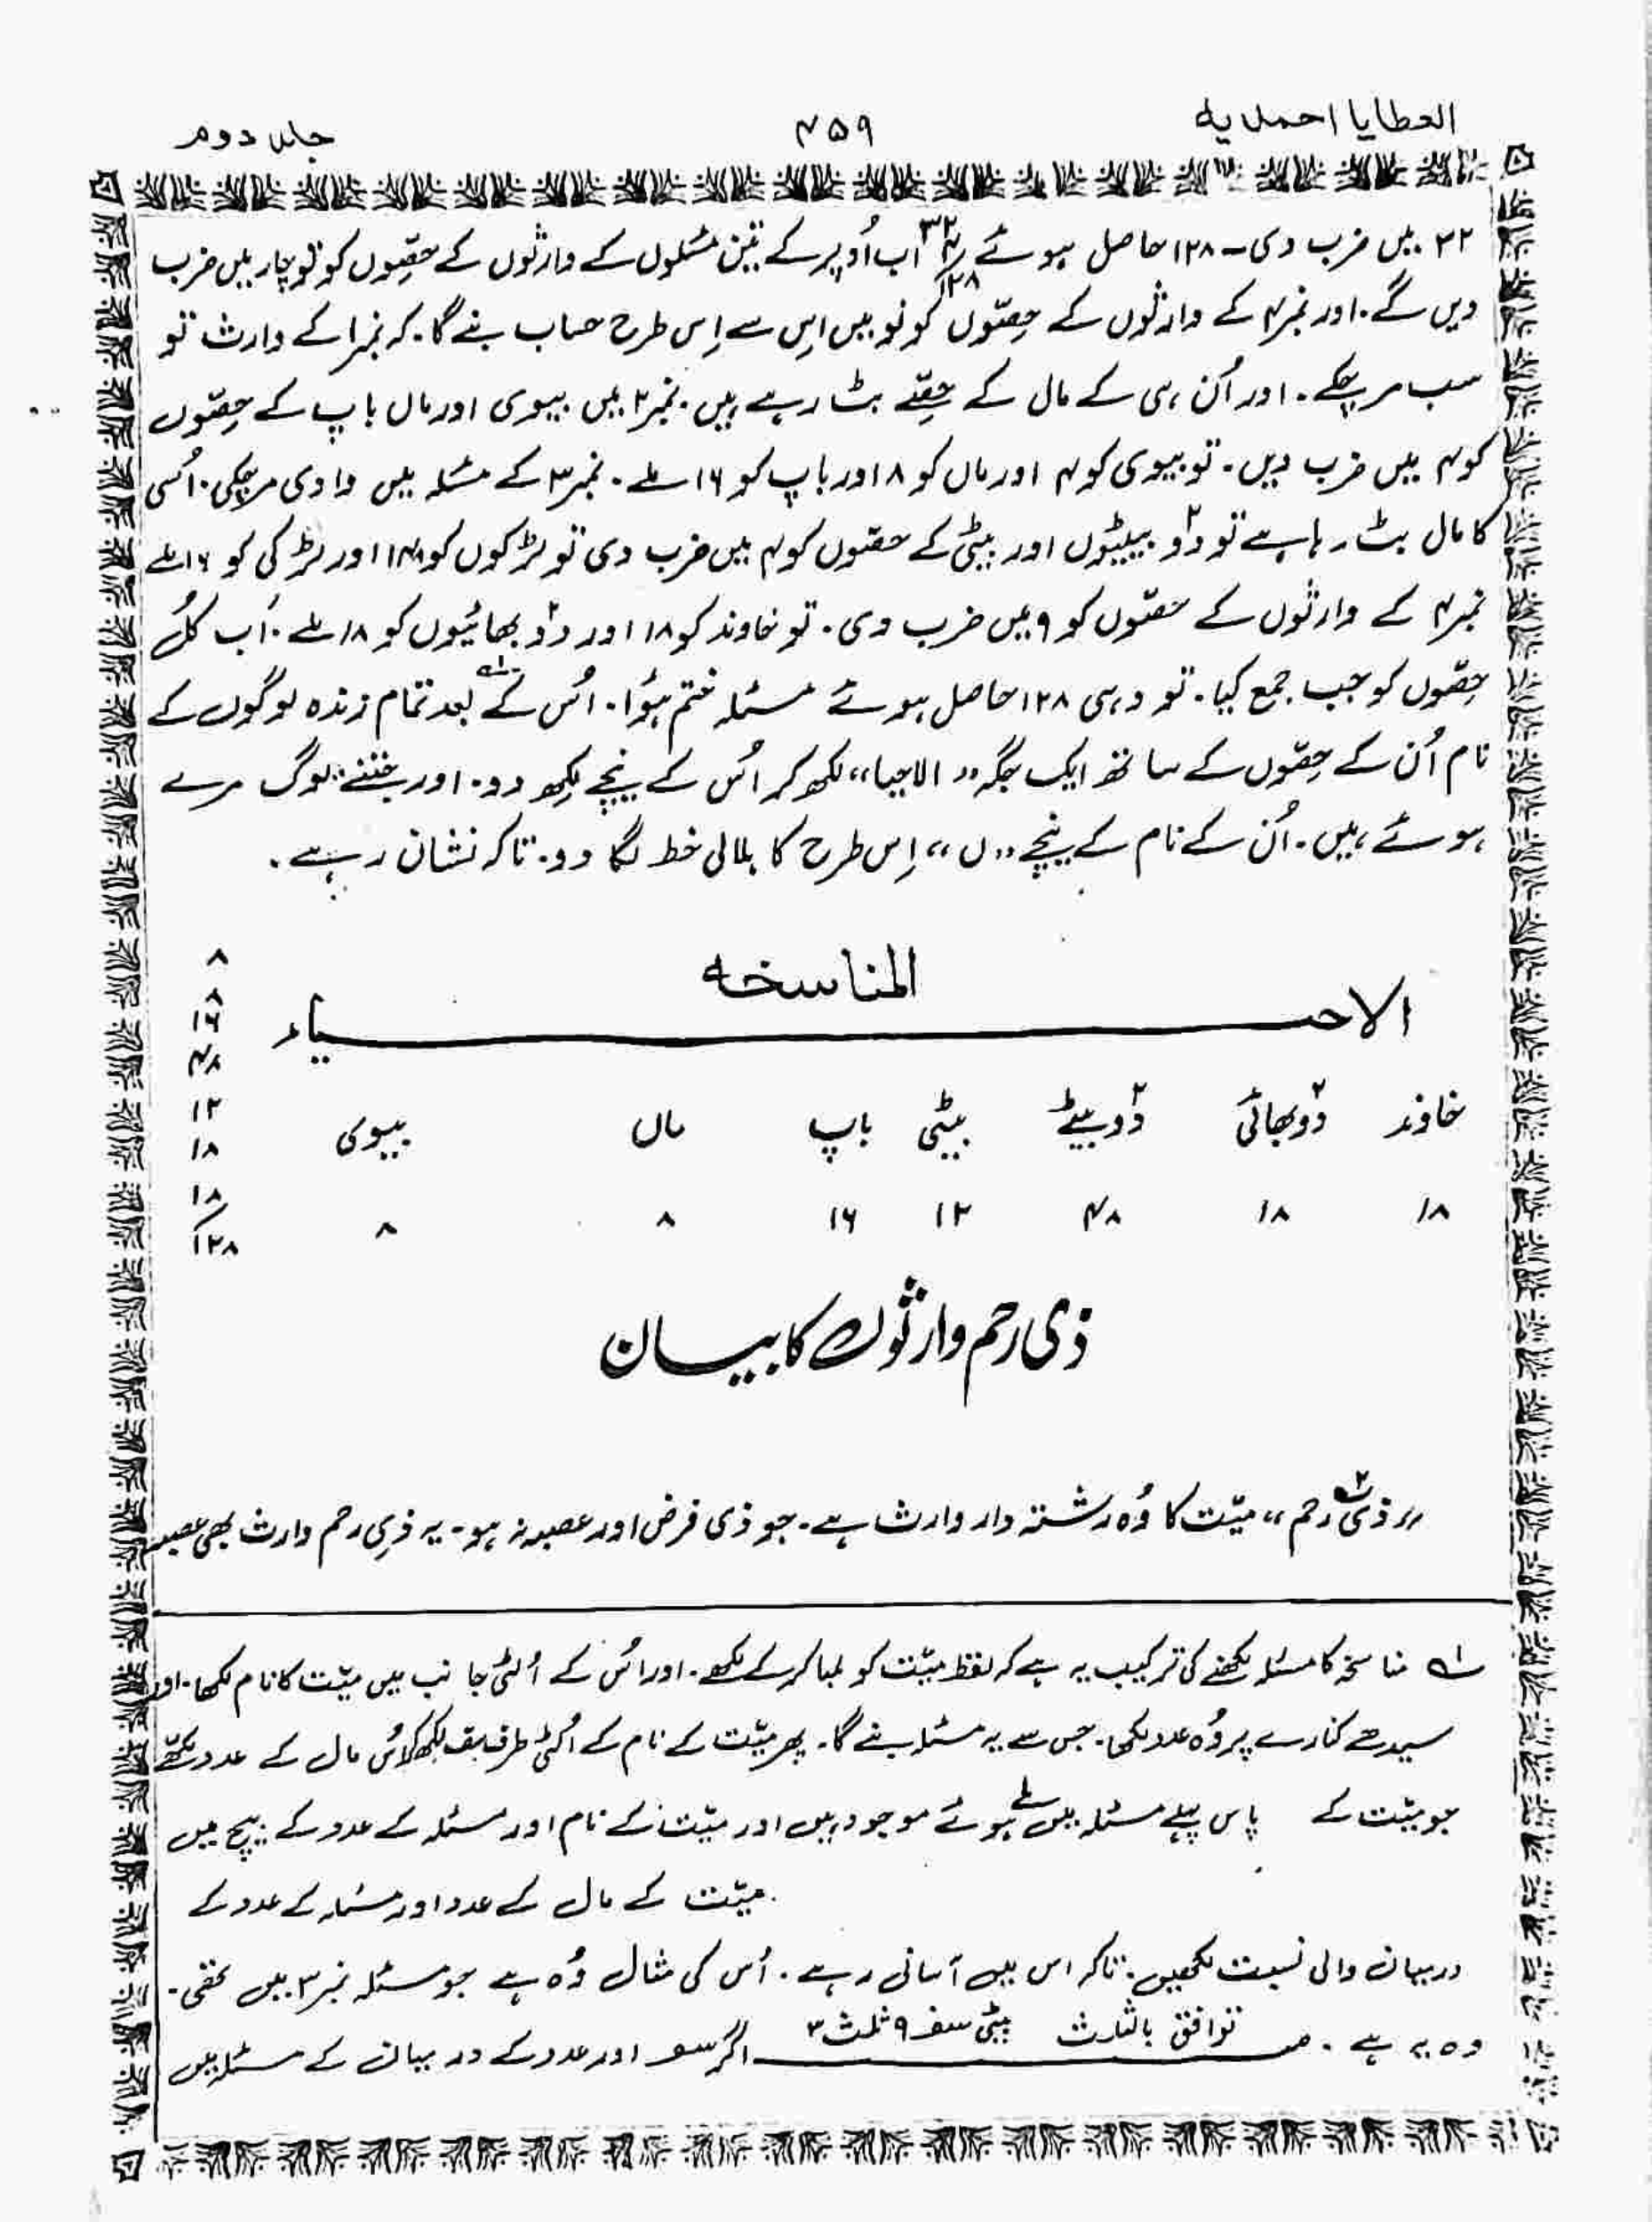 العطایا احمدیه
۴۵۹
جلد دوم
۳۲ میں ضرب دی۔ ۱۲۸ حاصل ہوئے ۳۲ ۴ ۱۲۸ اب اُوپر کے تین مسٔلوں کے وارثوں کے حصّوں کو تو چار میں ضرب
دیں گے۔ اور نمبر۴ کے وارثوں کے حصّوں کو نو میں اِس سے اِس طرح حساب بنے گا۔ کہ نمبر۱ کے وارث تو
سب مر چکے۔ اور اُن ہی کے مال کے حِصّے بٹ رہے ہیں۔ نمبر۲ میں بیوی اور ماں باپ کے حِصّوں
کو ۴ میں ضرب دیں۔ تو بیوی کو ۴ اور ماں کو ۸ اور باپ کو ۱۶ ملے۔ نمبر۳ کے مسٔلہ میں دادی مر چکی۔ اُسی
کا مال بٹ رہا ہے تو دو۲ بیٹیوں اور بیٹی کے حصّوں کو ۴ میں ضرب دی تو لڑکوں کو ۴۸ اور لڑکی کو ۱۲ ملے
نمبر۴ کے وارثوں کے حصّوں کو ۹ میں ضرب دی۔ تو خاوند کو ۱۸ اور دو۲ بھائیوں کو ۱۸ ملے۔ اَب کلُ
حِصّوں کو جب جمع کیا۔ تو وہی ۱۲۸ حاصل ہوئے مسئلہ ختم ہؤا۔ اُس کے۱ؔ بعد تمام زندہ لوگوں کے
نام اُن کے حِصّوں کے ساتھ ایک جگہ ،،الاحیا،، لکھ کر اُس کے نیچے لِکھ دو۔ اور جتنے لوگ مرے
ہوئے ہیں۔ اُن کے نام کے نیچے ،،ں،، اِس طرح کا ہلالی خط لگا دو۔ تاکہ نشان رہے۔
المناسخه
الاحیاء
خاوند دو۲ بھائی دو۲ بیٹے بیٹی باپ ماں بیوی
۱۸ ۱۸ ۴۸ ۱۲ ۱۶ ۸ ۸
۸
۸
۱۶
۴۸
۱۲
۱۸
۱۸
۱۲۸
ذی رحم وارثوں کا بیان
،،ذی۲ؔ رحم،، میّت کا وُہ رشتہ دار وارث ہے۔ جو ذی فرض اور عصبہ نہ ہو۔ یہ ذِی رحم وارث بھی عصبہ
۱ؔ مناسخہ کا مسئلہ لکھنے کی ترکیب یہ ہے کہ لفظ میّت کو لمبا کر کے لکھے۔ اور اُس کے اُلٹی جانب میں میّت کا نام لکھا۔ اور
سیدھے کنارے پر وُہ عدد لکھا۔ جس سے یہ مسئلہ بنے گا۔ پھر میّت کے نام کے اُلٹی طرف لکھ کر اُس مال کے عدد لکھے
جو میّت کے پاس پہلے مسئلہ میں ملے ہوئے موجود ہیں اور میّت کے نام اور مسئلہ کے عدد کے بیچ میں
میّت کے مال کے عدد اور مسئلہ کے عدد کے
درمیان والی نسبت لکھیں۔ تاکہ اس میں آسانی رہے۔ اُس کی مثال وُہ ہے جو مسئلہ نمبر۳ میں تھی۔
وہ یہ ہے۔ توافق بالثلث بیٹی ۹ ثلث ۳ اگر اور عدد کے درمیان کے مسئلہ میں